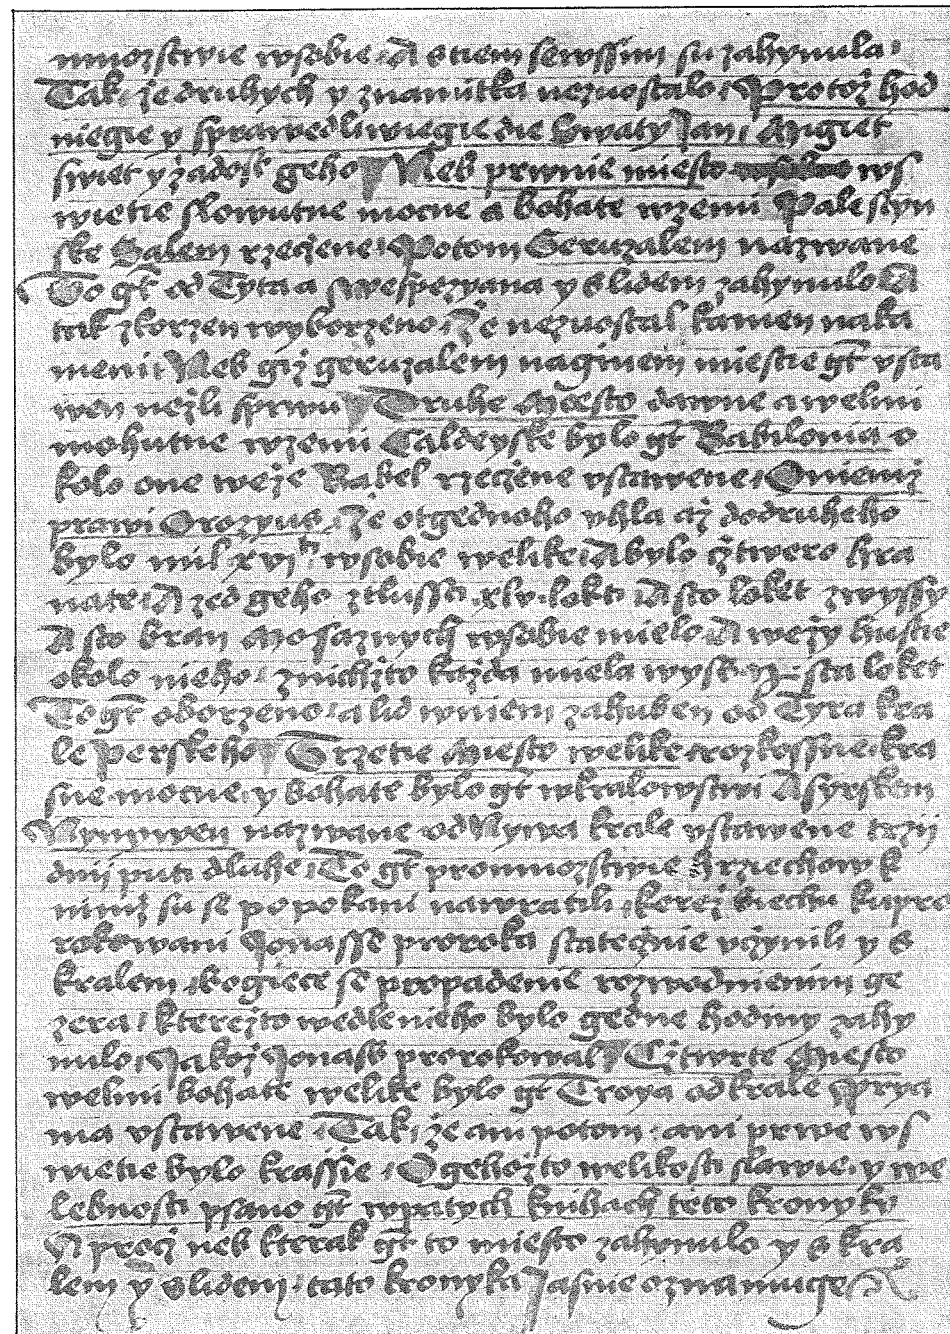 mnozstwie wsobie · A s tiem sewssim su zahynula ·
Tak · ze druhych y znamitka nezuostalo · Protoz hod
niegie y sprawedliwiegie die Swaty Jan · Mgiet
swiet y zadost geho Neb prwnie miesto ws
wietie slowutne mocne a bohate wzemi Palestyn
ske Salem rzeczene · Potom Geruzalem nazwane
To gt od Tyta a Wespezyana y s lidem zahynulo A
tak zkorzen wyborzeno · Ze nezuostal kamen naka
meni · Neb giz geruzalem naginem miestie gt vsta
wen nezli sprwu Druhe Miesto dawne a welmi
mohutne wzemi Caldeyske bylo gt Babilonia o
kolo one weze Babel rzeczene vstawene · Oniemz
prawi Orozyus · Ze otgednoho vhla az dodruheho
bylo mil · xvi · wsobie welike · A bylo cztwero hra
nate · A zed geho ztlussti · xlv · lokti · A sto loket zwyssy
A sto bran Mosaznych wsobie mielo · A wezy hustie
okolo nieho · znichzto kazda miela wysk sta loket
To gt oborzeno · a lid wniem zahuben od Cyra kra
le Perskeho Trzetie Miesto welike · rozkossne · kra
sne · mocne · y bohate bylo gt wkralowstwi Asyrskem
Nynywen nazwane · od Nyna krale vstawene trzij
dnij puti dluhe · To gt promnozstwie hrziechow k
nimz su se po pokani nawratili · kerez biechu kupro
rokowani Jonasse proroka statecznie vczynili y s
kralem · bogiece se propadenie rozwodnienim ge
zera · kterezto wedle nieho bylo gedne hodiny zahy
nulo · Jakoz Jonass prorokowal Cztwrte Miesto
welmi bohate welike bylo gt Troya od krale Prya
ma vstawene · Tak · ze ani potom · ani prwe ws
wietie bylo krassie · O gehozto welikosti slawie · y we
lebnosti psano gt wpatych knihach teto kronyky
A procz neb kterak gt to miesto zahynulo y s kra
lem y s lidem · tato kronyka Jasnie oznamuge